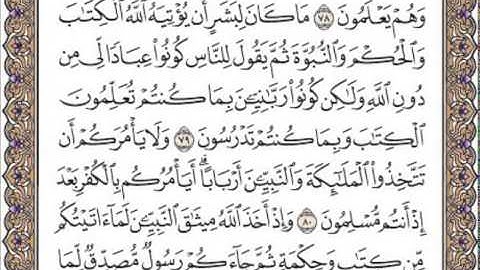 وَهُمْ يَعْلَمُونَ ٧٨ مَا كَانَ لِبَشَرٍ أَن يُؤْتِيَهُ ٱللَّهُ ٱلْكِتَٰبَ
وَٱلْحُكْمَ وَٱلنُّبُوَّةَ ثُمَّ يَقُولَ لِلنَّاسِ كُونُوا۟ عِبَادًا لِّى مِن
دُونِ ٱللَّهِ وَلَٰكِن كُونُوا۟ رَبَّٰنِيِّۦنَ بِمَا كُنتُمْ تُعَلِّمُونَ
ٱلْكِتَٰبَ وَبِمَا كُنتُمْ تَدْرُسُونَ ٧٩ وَلَا يَأْمُرَكُمْ أَن
تَتَّخِذُوا۟ ٱلْمَلَٰٓئِكَةَ وَٱلنَّبِيِّۦنَ أَرْبَابًا ۗ أَيَأْمُرُكُم بِٱلْكُفْرِ بَعْدَ
إِذْ أَنتُم مُّسْلِمُونَ ٨٠ وَإِذْ أَخَذَ ٱللَّهُ مِيثَٰقَ ٱلنَّبِيِّۦنَ لَمَآ ءَاتَيْتُكُم
مِّن كِتَٰبٍ وَحِكْمَةٍ ثُمَّ جَآءَكُمْ رَسُولٌ مُّصَدِّقٌ لِّمَا